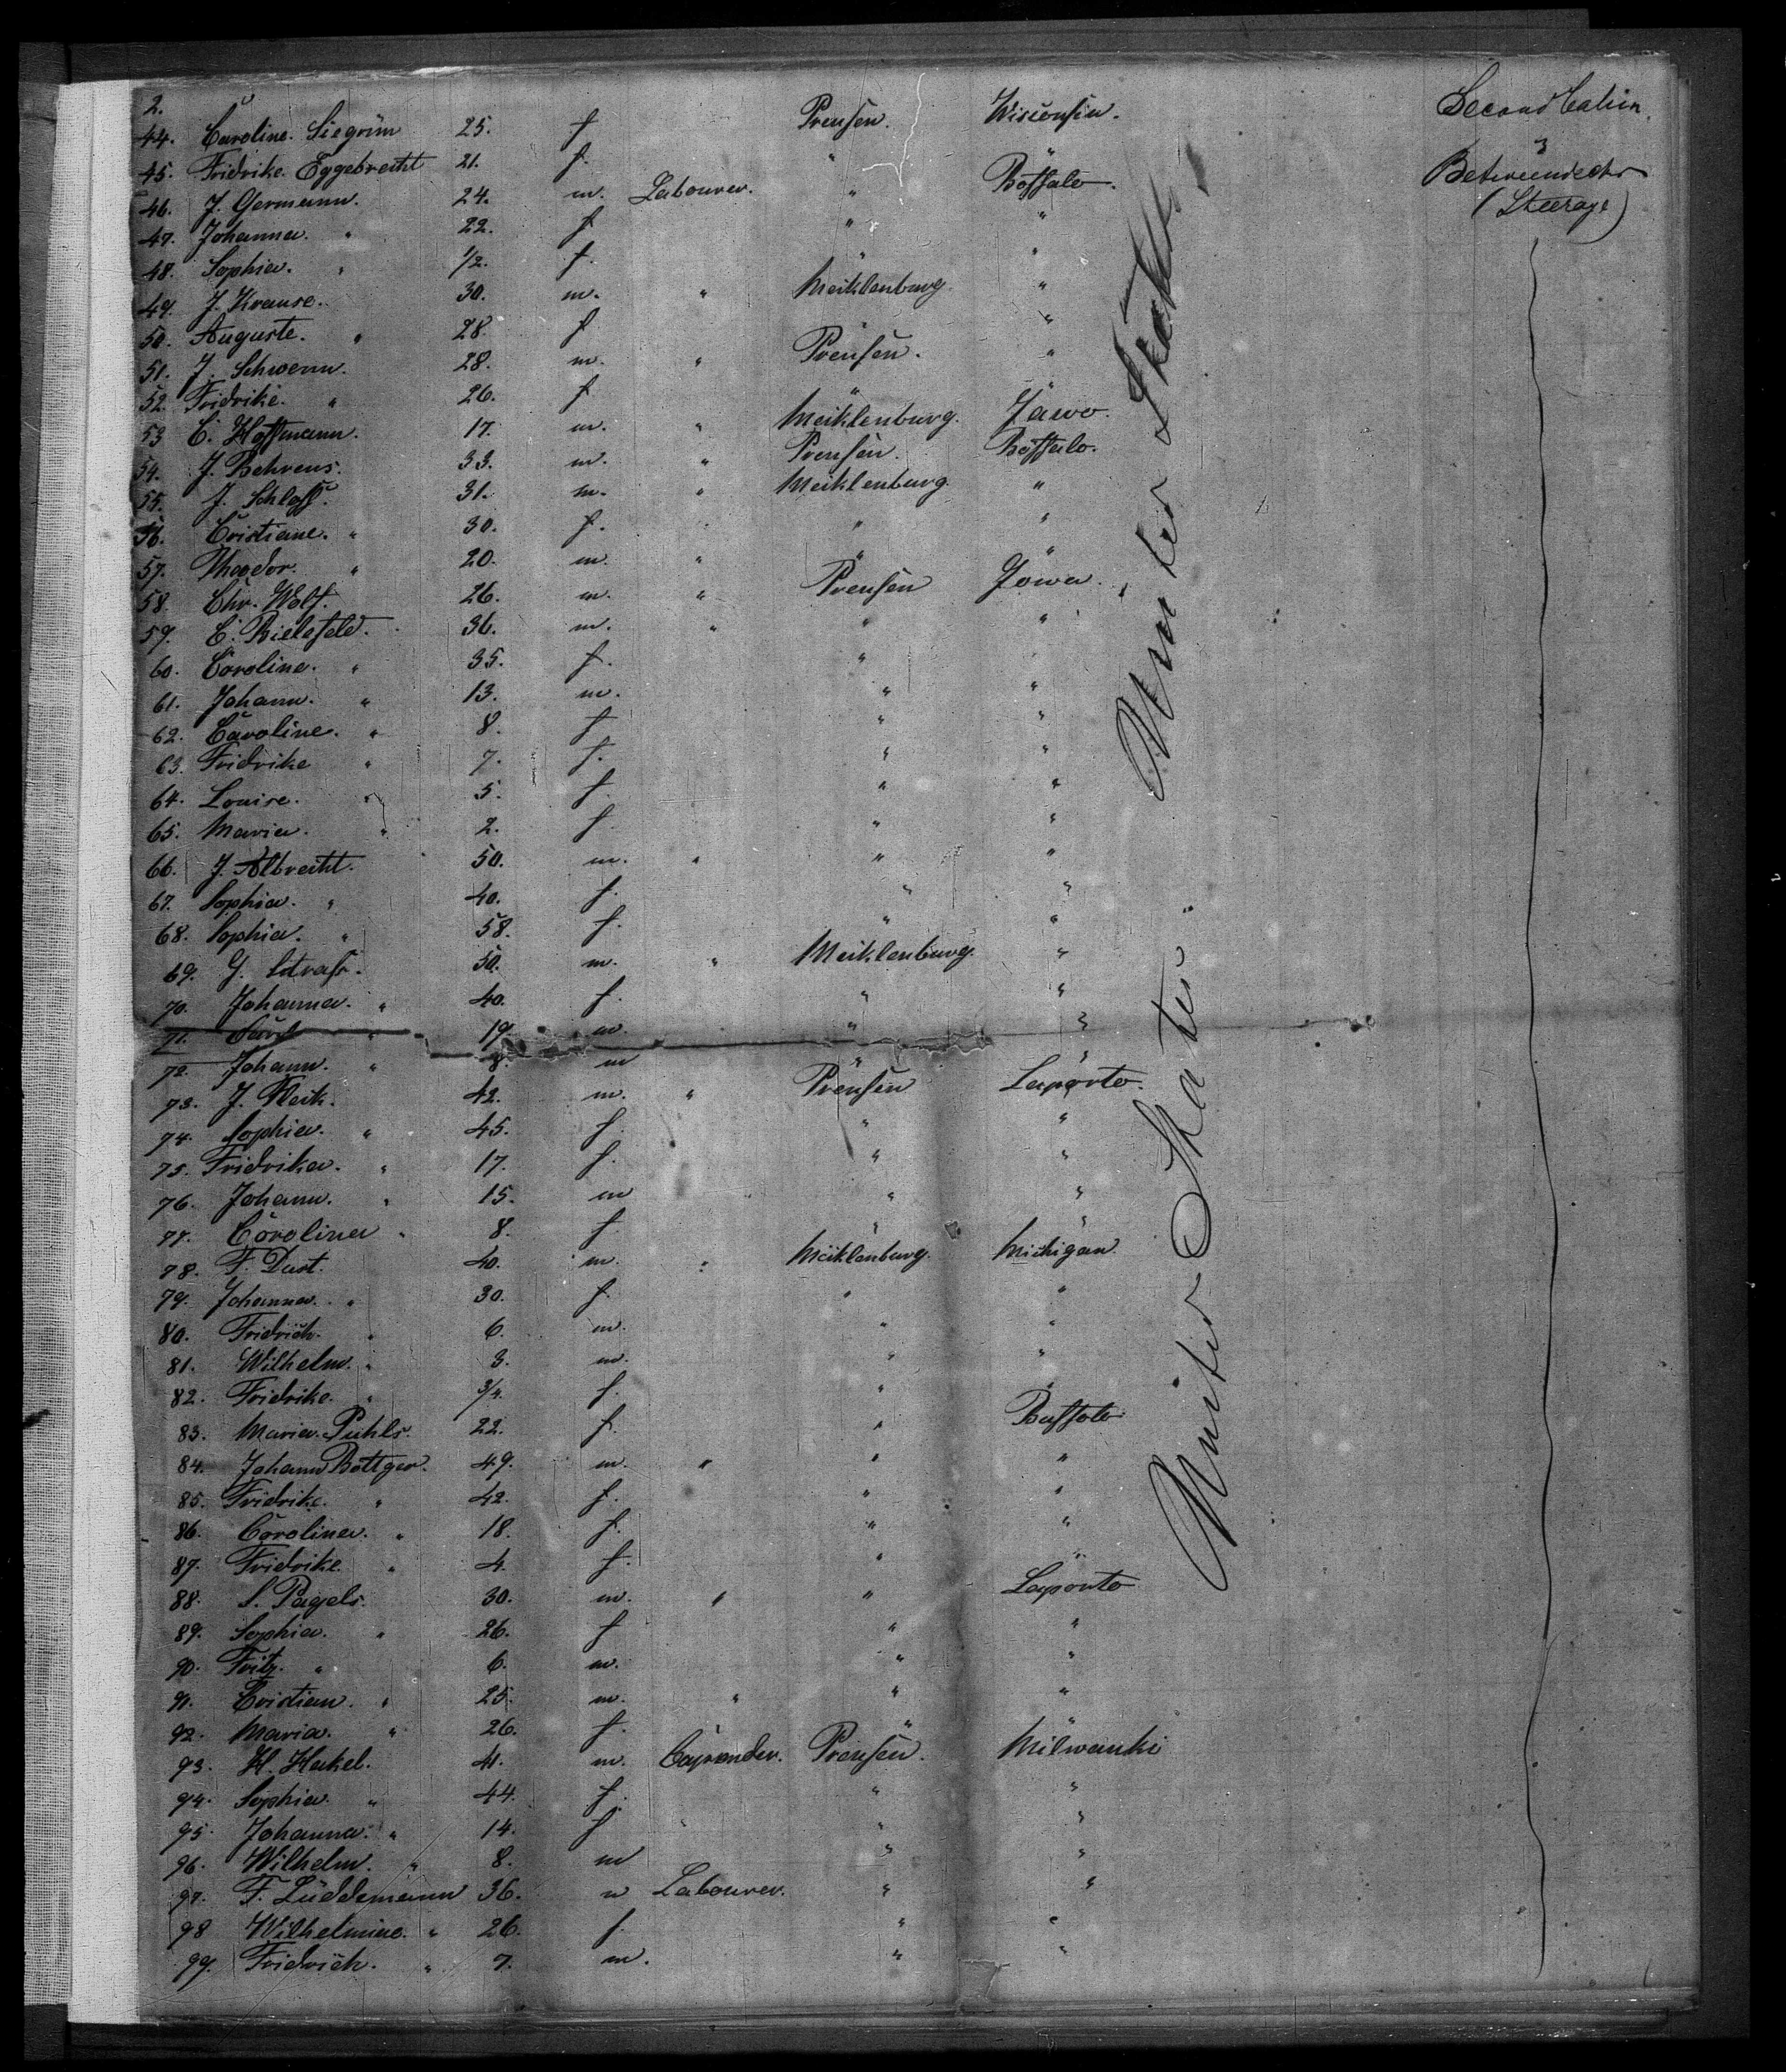 2.
44. Caroline. Siegrün 25. f Preusen. Wisconsin. Second Cabin
45. Fridrike. Eggebrecht 21. f. " " Betweendecks
46. J. Germann. 24. m. Labourer. " Boffalo. (Steerage)
47. Johanna. " 22. f " "
48. Sophia. " 1/2. f. " "
49. J. Krause. 30. m. " Mecklenburg "
50. Auguste. " 28. f " "
51. J. Schwenn. 28. m. " Preusen. "
52. Fridrike. " 26. f " "
53 C. Hoffmann. 17. m. " Mecklenburg. Jawo.
54. J. Behrens. 33. m. " Preusen. Boffalo.
55. J. Schloss. 31. m. " Mecklenburg "
56. Cristiane. " 30. f. " "
57. Theodor. " 20. m. " " "
58. Chr. Wolf. 26. m. " Preusen Jowa.
59. C. Bielefeld. 36. m. " " "
60. Caroline. " 35. f. " "
61. Johann. " 13. m. " "
62. Caroline. " 8. f " "
63. Fridrike " 7. f. " "
64. Louise. " 5. f " "
65. Maria. " 2. f. " "
66. J. Albrecht. 50. m. " " "
67. Sophia. " 40. f. " "
68. Sophia. " 58. f. " "
69. J. Strass. 50. m. " Mecklenburg. "
70. Johanna. " 40. f. " "
71. " 19. m. " "
72. Johann. " 8. m " "
73. J. Fleck. 42. m. " Preusen Laporto.
74. Sophia. " 45. f. " "
75. Fridrika. " 17. f. " "
76. Johann. " 15. m " "
77. Carolina " 8. f. " "
78. F. Dust. 40. m. " Mecklenburg. Michigan.
79. Johanna. " 30. f. " "
80. Fridrich. " 6. m. " "
81. Wilhelm. " 3. m. " "
82. Fridrike. " 3/4. f. " "
83. Maria. Puhls. 22. f. " Buffalo
84. Johann Bottger. 49. m. " " "
85. Fridrike. " 42. f. " "
86. Carolina. " 18. f. " "
87. Fridrike. " 4. f. " "
88. S. Pagels. 30. m. " " Laporto
89. Sophia. " 26. f " "
90. Fritz. " 6. m. " "
91. Cristian. " 25. m. " " "
92. Maria. " 26. f. " "
93. H. Hakel. 41. m. Carpender. Preusen. Milwauki
94. Sophia. " 44. f. " "
95. Johanna. " 14. f " "
96. Wilhelm. " 8. m " "
97. F. Lüddemann 36. m Labourer. " "
98 Wilhelmine. " 26. f. " "
99. Fridrich. " 7. m. " "
United States
United States